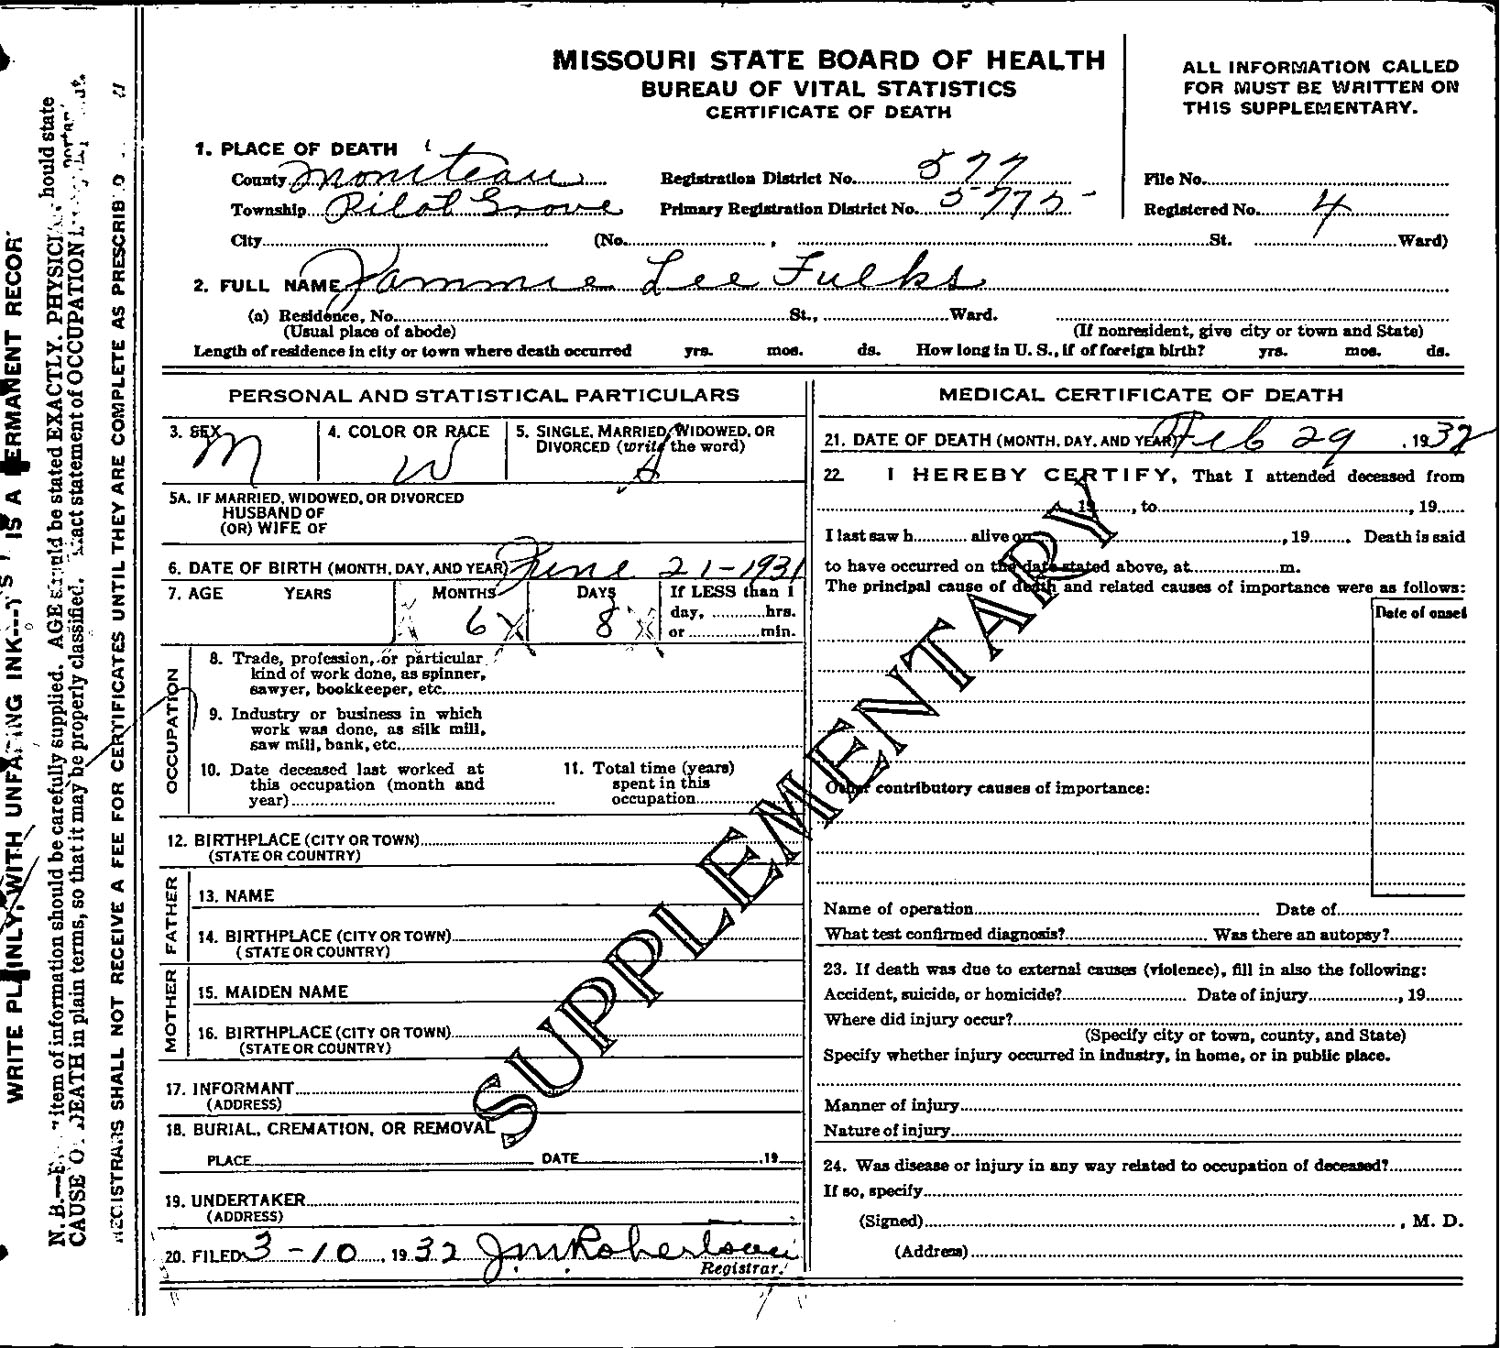 MISSOURI STATE BOARD OF HEALTH
BUREAU OF VITAL STATISTICS
CERTIFICATE OF DEATH
ALL INFORMATION CALLED
FOR MUST BE WRITTEN ON
THIS SUPPLEMENTARY.
1. PLACE OF DEATH
County Moniteau Registration District No. 577 File No.
Township Pilot Grove Primary Registration District No. 5775 Registered No. 4
City (No. , St. Ward)
2. FULL NAME Jammie Lee Fulks
(a) Residence, No. St., Ward.
(Usual place of abode) (If nonresident, give city or town and State)
Length of residence in city or town where death occurred yrs. mos. ds. How long in U. S., if of foreign birth? yrs. mos. ds.
PERSONAL AND STATISTICAL PARTICULARS
3. SEX M 4. COLOR OR RACE W 5. SINGLE, MARRIED, WIDOWED, OR
DIVORCED (write the word) S
5A. IF MARRIED, WIDOWED, OR DIVORCED
HUSBAND OF
(OR) WIFE OF
6. DATE OF BIRTH (MONTH, DAY, AND YEAR) June 21-1931
7. AGE YEARS MONTHS DAYS If LESS than 1
6 8 day, hrs.
or min.
OCCUPATION
8. Trade, profession, or particular
kind of work done, as spinner,
sawyer, bookkeeper, etc.
9. Industry or business in which
work was done, as silk mill,
saw mill, bank, etc.
10. Date deceased last worked at
this occupation (month and
year)
11. Total time (years)
spent in this
occupation
12. BIRTHPLACE (CITY OR TOWN)
(STATE OR COUNTRY)
FATHER
13. NAME
14. BIRTHPLACE (CITY OR TOWN)
(STATE OR COUNTRY)
MOTHER
15. MAIDEN NAME
16. BIRTHPLACE (CITY OR TOWN)
(STATE OR COUNTRY)
17. INFORMANT
(ADDRESS)
18. BURIAL, CREMATION, OR REMOVAL
PLACE DATE , 19
19. UNDERTAKER
(ADDRESS)
20. FILED 3-10, 1932 J.M. Robertson
Registrar.
MEDICAL CERTIFICATE OF DEATH
21. DATE OF DEATH (MONTH, DAY, AND YEAR) Feb 29 , 1932
22. I HEREBY CERTIFY, That I attended deceased from
, 19 , to , 19
I last saw h alive on , 19 . Death is said
to have occurred on the date stated above, at m.
The principal cause of death and related causes of importance were as follows:
Date of onset
Other contributory causes of importance:
Name of operation Date of
What test confirmed diagnosis? Was there an autopsy?
23. If death was due to external causes (violence), fill in also the following:
Accident, suicide, or homicide? Date of injury , 19
Where did injury occur?
(Specify city or town, county, and State)
Specify whether injury occurred in industry, in home, or in public place.
Manner of injury
Nature of injury
24. Was disease or injury in any way related to occupation of deceased?
If so, specify
(Signed) , M. D.
(Address)
SUPPLEMENTARY
WRITE PLAINLY, WITH UNFADING INK---THIS IS A PERMANENT RECORD
N. B.— item of information should be carefully supplied. AGE should be stated EXACTLY. PHYSICIANS should state
CAUSE OF DEATH in plain terms, so that it may be properly classified. Exact statement of OCCUPATION
REGISTRARS SHALL NOT RECEIVE A FEE FOR CERTIFICATES UNTIL THEY ARE COMPLETE AS PRESCRIBED